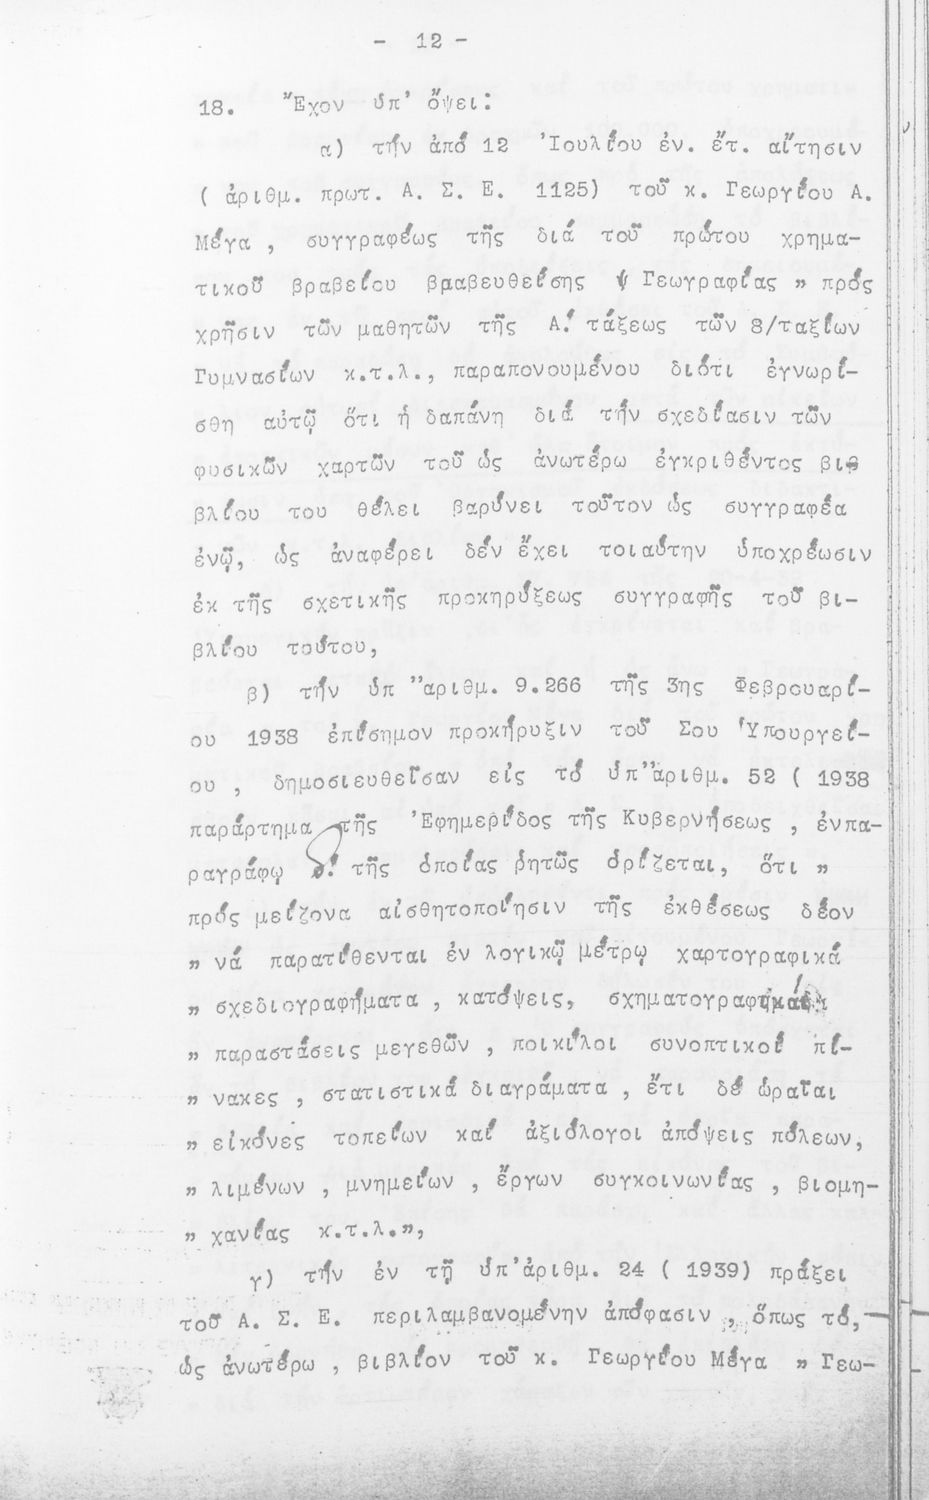 - 12 -
18. Ἔχον ὑπ' ὄψει:
α) τήν ἀπό 12 Ἰουλίου ἐν. ἔτ. αἴτησιν
( ἀριθμ. πρωτ. Α. Σ. Ε. 1125) τοῦ κ. Γεωργίου Α.
Μέγα , συγγραφέως τῆς διά τοῦ πρώτου χρημα-
τικοῦ βραβείου βραβευθείσης " Γεωγραφίας " πρός
χρῆσιν τῶν μαθητῶν τῆς Α! τάξεως τῶν 8/ταξίων
Γυμνασίων κ.τ.λ., παραπονουμένου διότι ἐγνωρί-
σθη αὐτῷ ὅτι ἡ δαπάνη διά τήν σχεδίασιν τῶν
φυσικῶν χαρτῶν τοῦ ὡς ἀνωτέρω ἐγκριθέντος βι-
βλίου του θέλει βαρύνει τοῦτον ὡς συγγραφέα
ἐνῷ, ὡς ἀναφέρει δέν ἔχει τοιαύτην ὑποχρέωσιν
ἐκ τῆς σχετικῆς προκηρύξεως συγγραφῆς τοῦ βι-
βλίου τούτου,
β) τήν ὑπ "αριθμ. 9.266 τῆς 3ης Φεβρουαρί-
ου 1938 ἐπίσημον προκήρυξιν τοῦ Σου Ὑπουργεί-
ου , δημοσιευθεῖσαν εἰς τό ὑπ"ἀριθμ. 52 ( 1938
παράρτημα τῆς Ἐφημερίδος τῆς Κυβερνήσεως , ἐνπα-
ραγράφῳ δ! τῆς ὁποίας ῥητῶς ὁρίζεται, ὅτι "
πρός μείζονα αἰσθητοποίησιν τῆς ἐκθέσεως δέον
" νά παρατίθενται ἐν λογικῷ μέτρῳ χαρτογραφικά
" σχεδιογραφήματα , κατόψεις, σχηματογραφικαί
" παραστάσεις μεγεθῶν , ποικίλοι συνοπτικοί πί-
" νακες , στατιστικά διαγράματα , ἔτι δέ ὡραῖαι
" εἰκόνες τοπείων καί ἀξιόλογοι ἀπόψεις πόλεων,
" λιμένων , μνημείων , ἔργων συγκοινωνίας , βιομη-
" χανίας κ.τ.λ.",
γ) τήν ἐν τῇ ὑπ'ἀριθμ. 24 ( 1939) πράξει
τοῦ Α. Σ. Ε. περιλαμβανομένην ἀπόφασιν , ὅπως τό,
ὡς ἀνωτέρω , βιβλίον τοῦ κ. Γεωργίου Μέγα " Γεω-